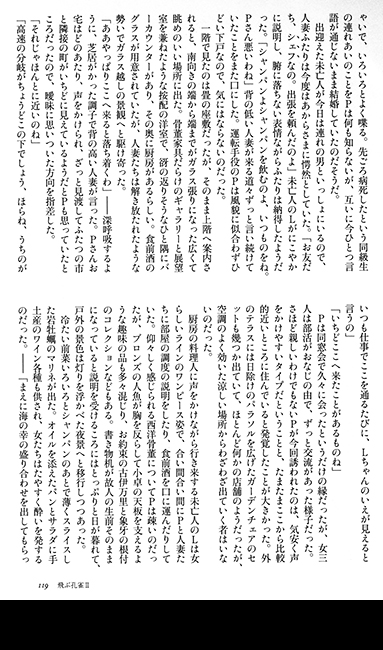 ゃいで、いろいろとよく喋る。先ごろ病死したという同級生
の連れあいのことをPは何も知らないが、互いに今ひとつ言
語が通じないまま結婚していたのだそうだ。
出迎えた未亡人が今日は連れの男といっしょにいるので、
人妻ふたりは今度はあからさまに愕然としていた。「お友だ
ち。シェフなの。出張を頼んだのよ」未亡人のLがにこやか
に説明し、腑に落ちない表情ながらふたりは納得したようだ
った。「シャンパンよシャンパンを飲むのよ、いつものをね。
Pさん悪いわね」背の低い人妻が来る道々ずっと言い続けて
いたことをまた口にした。運転手役のPは風貌に似合わずひ
どい下戸なので、気にはならないのだった。
一階で見たのは畳の座敷だったが、そのまま上階へ案内さ
れると、南向きの端から端までがガラス張りになった広くて
眺めのいい場所に出た。骨董家具だらけのギャラリーと展望
室を兼ねたような按配の洋室で、洞の返りそうなひと隅にバ
ーカウンターがあり、その奥に厨房があるらしい。食前酒の
グラスが用意されていたが、人妻たちは解き放たれたような
勢いでガラス越しの景観へと駆け寄った。
「ああやっぱりここへ来ると落ち着くわ」――深呼吸するよ
うに、芝居がかった調子で背の高い人妻が言った。Pさんお
宅はどのあたり、声をかけられ、ざっと見渡してふたつの市
と隣接の町がいちどに見えているようだとPも思っていたと
ころだったので、曖昧に思いついた方向を指差した。
「それじゃほんとに近いのね」
「高速の分岐がちょうどこの下でしょう、ほらね、うちのが
いつも仕事でここを通るたびに、Lちゃんのいえが見えると
言うの」
「いちどここへ来たことがあるものね」
Pは同窓会で久々に会ったというだけの縁だったが、女三
人は部活がおなじの由で、ずっと交流があった様子だった。
さほど親しいわけでもないPが今回誘われたのは、気安く声
をかけやすいタイプだということと、たまたまここから比較
的近いところに住んでいると発覚したことが大きかった。外
のテラスには日除けのパラソルを広げたガーランチェアのセ
ットも幾つか出ていて、ほとんど何かの店舗のようだったが、
空調のよく効いた涼しい場所からわざわざ出ていく者はいな
いのだった。
厨房の料理人に声をかけながら行き来する未亡人のLは女
らしいラインのワンピース姿で、合い間合い間にPと人妻た
ちに部屋の調度の説明をしたり、食前酒を口に運んだりして
いた。仰々しく感じられる西洋骨董についてPは疎いのだっ
たが、ブロンズの人魚が胸を反らして小卓の天板を支えるよ
うな趣味の品も多々混じり、お約束の古伊万里と象牙の根付
のコレクションなどもある。書き物机が故人の生前そのまま
になっていると説明を受けるころにはとっぷりと日が暮れて、
戸外の景色は灯りを浮かべた夜景へと移行しつつあった。
冷たい前菜いろいろとシャンパンのあとで薄くスライスし
た岩牡蠣のマリネが出た。オイルを添えたパンとサラダに手
土産のワイン各種も供され、女たちはたやすく酔いを発する
のだった。――「まえに海の幸の盛り合わせを出してもらっ
119　飛ぶ孔雀Ⅱ